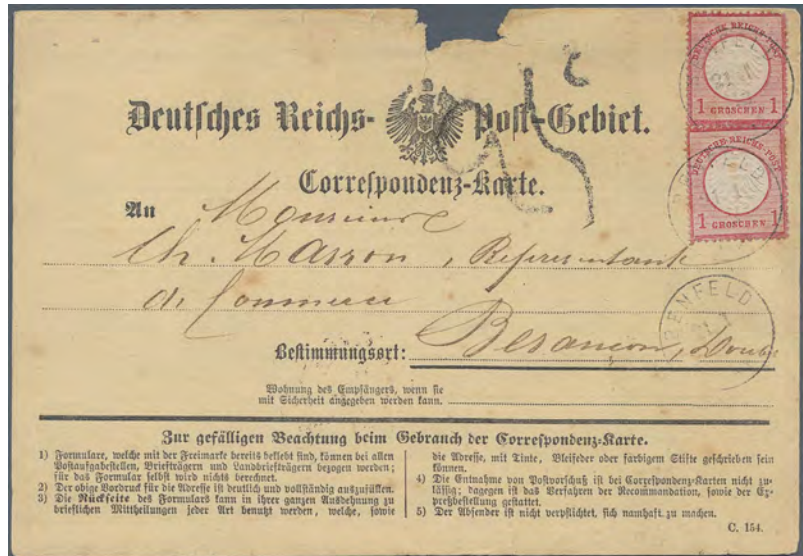 DEUTSCHE REICHS-POST
1 GROSCHEN 1
DEUTSCHE REICHS-POST
1 GROSCHEN 1
25 c
Deutsches Reichs-Post-Gebiet.
Correspondenz-Karte.
An Monsieur
Ch. Masson, Representant
de Commerce
BENFELD
Bestimmungsort: Besancon, Doubs
Wohnung des Empfängers, wenn sie
mit Sicherheit angegeben werden kann.
Zur gefälligen Beachtung beim Gebrauch der Correspondenz-Karte.
1) Formulare, welche mit der Freimarke bereits beklebt sind, können bei allen
Postaufgabestellen, Briefträgern und Landbriefträgern bezogen werden;
für das Formular selbst wird nichts berechnet.
2) Der obige Vordruck für die Adresse ist deutlich und vollständig auszufüllen.
3) Die Rückseite des Formulars kann in ihrer ganzen Ausdehnung zu
brieflichen Mittheilungen jeder Art benutzt werden, welche, sowie
die Adresse, mit Tinte, Bleifeder oder farbigem Stifte geschrieben sein
können.
4) Die Entnahme von Postvorschuß ist bei Correspondenz-Karten nicht zu-
lässig; dagegen ist das Verfahren der Recommandation, sowie der Ex-
preßbestellung gestattet.
5) Der Absender ist nicht verpflichtet, sich namhaft zu machen.
C. 154.